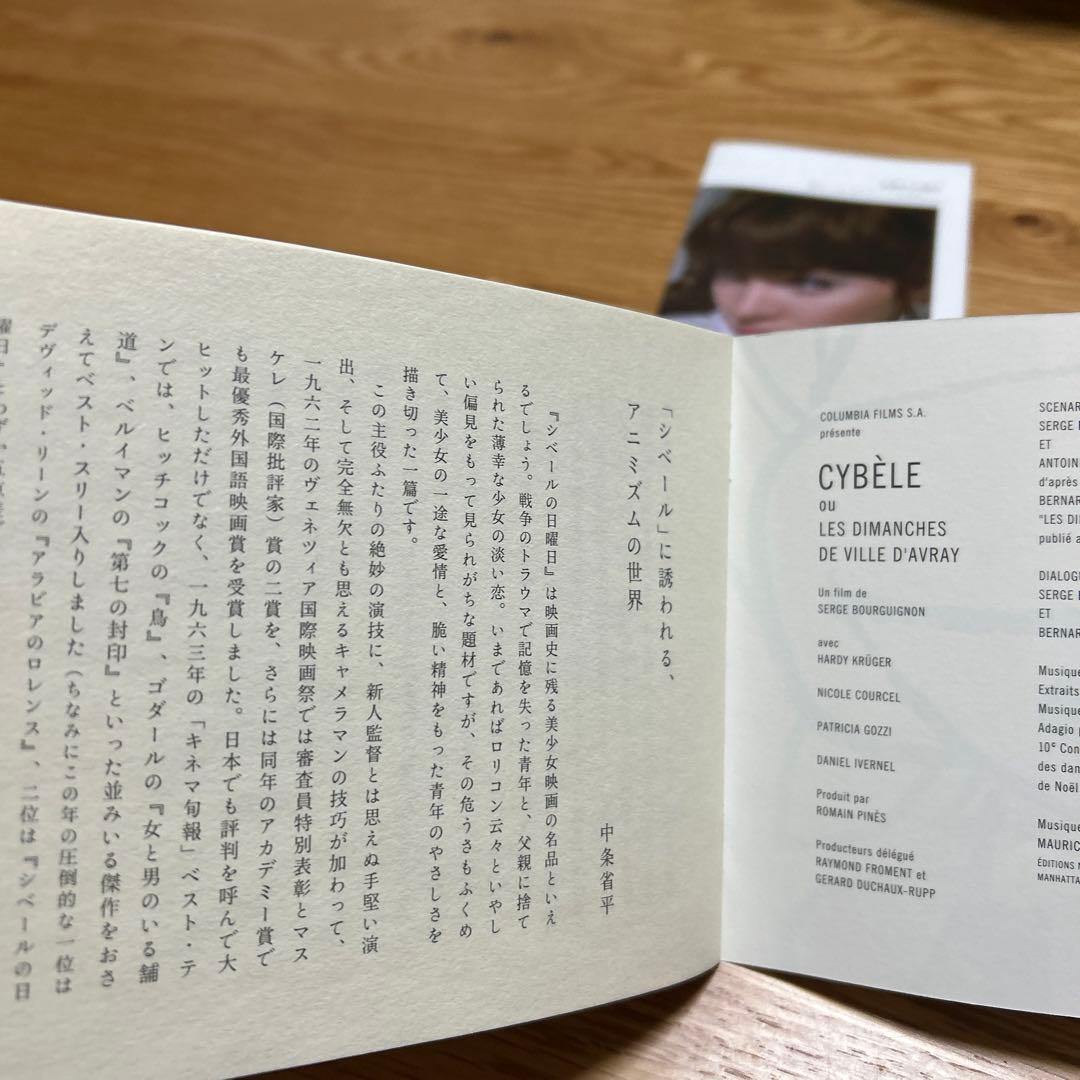 「シベール」に誘われる、
アニミズムの世界
中条省平
『シベールの日曜日』は映画史に残る美少女映画の名品といえ
るでしょう。戦争のトラウマで記憶を失った青年と、父親に捨て
られた薄幸な少女の淡い恋。いまであればロリコン云々といやし
い偏見をもって見られがちな題材ですが、その危うさもふくめ
て、美少女の一途な愛情と、脆い精神をもった青年のやさしさを
描き切った一篇です。
この主役ふたりの絶妙の演技に、新人監督とは思えぬ手堅い演
出、そして完全無欠とも思えるキャメラマンの技巧が加わって、
一九六二年のヴェネツィア国際映画祭では審査員特別表彰とマス
ケレ（国際批評家）賞の二賞を、さらには同年のアカデミー賞で
も最優秀外国語映画賞を受賞しました。日本でも評判を呼んで大
ヒットしただけでなく、一九六三年の「キネマ旬報」ベスト・テ
ンでは、ヒッチコックの『鳥』、ゴダールの『女と男のいる舗
道』、ベルイマンの『第七の封印』といった並みいる傑作をおさ
えてベスト・スリー入りしました（ちなみにこの年の圧倒的な一位は
デヴィッド・リーンの『アラビアのロレンス』、二位は『シベールの日
COLUMBIA FILMS S.A.
présente
CYBÈLE
OU
LES DIMANCHES
DE VILLE D'AVRAY
Un film de
SERGE BOURGUIGNON
avec
HARDY KRÜGER
NICOLE COURCEL
PATRICIA GOZZI
DANIEL IVERNEL
Produit par
ROMAIN PINÈS
Producteurs délégué
RAYMOND FROMENT et
GERARD DUCHAUX-RUPP
SCENAR
SERGE
ET
ANTOIN
d'après
BERNAR
"LES DI
publié a
DIALOGU
SERGE
ET
BERNAR
Musique
Extraits
Musique
Adagio
10e Con
des dan
de Noël
Musique
MAURIC
ÉDITIONS
MANHATTA